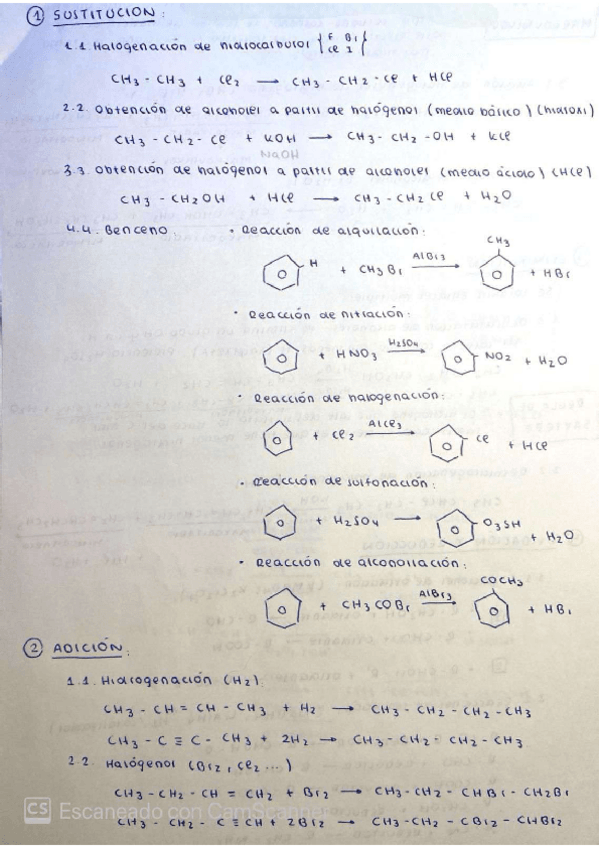 ① SUSTITUCIÓN:
1.1. Halogenación de hidrocarburos { F Br Cl I }
CH3 - CH3 + Cl2 → CH3 - CH2 - Cl + HCl
2.2. Obtención de alcoholes a partir de halógenos (medio básico) (hidroxi)
CH3 - CH2 - Cl + KOH → CH3 - CH2 - OH + KCl
NaOH
3.3. Obtención de halógenos a partir de alcoholes (medio ácido) (HCl)
CH3 - CH2OH + HCl → CH3 - CH2 Cl + H2O
4.4. Benceno. · Reacción de alquilación:
CH3
H + CH3Br AlBr3 → + HBr
· Reacción de nitración:
+ HNO3 H2SO4 → NO2 + H2O
· Reacción de halogenación:
+ Cl2 AlCl3 → Cl + HCl
· Reacción de sulfonación:
+ H2SO4 → O3SH + H2O
· Reacción de alcoholación:
COCH3
+ CH3COBr AlBr3 → + HBr
② ADICIÓN:
1.1. Hidrogenación (H2):
CH3 - CH = CH - CH3 + H2 → CH3 - CH2 - CH2 - CH3
CH3 - C ≡ C - CH3 + 2H2 → CH3 - CH2 - CH2 - CH3
2.2. Halógenos (Br2, Cl2 ...)
CH3 - CH2 - CH = CH2 + Br2 → CH3 - CH2 - CHBr - CH2Br
CS Escaneado con CamScanner
CH3 - CH2 - C ≡ CH + 2Br2 → CH3 - CH2 - CBr2 - CHBr2